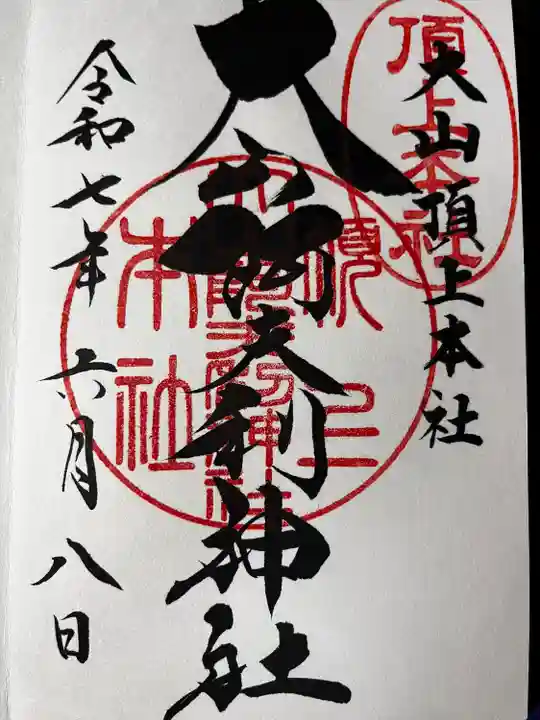 大山頂上本社
頂上本社
大山阿夫利神社
頂上
本社
令和七年六月八日